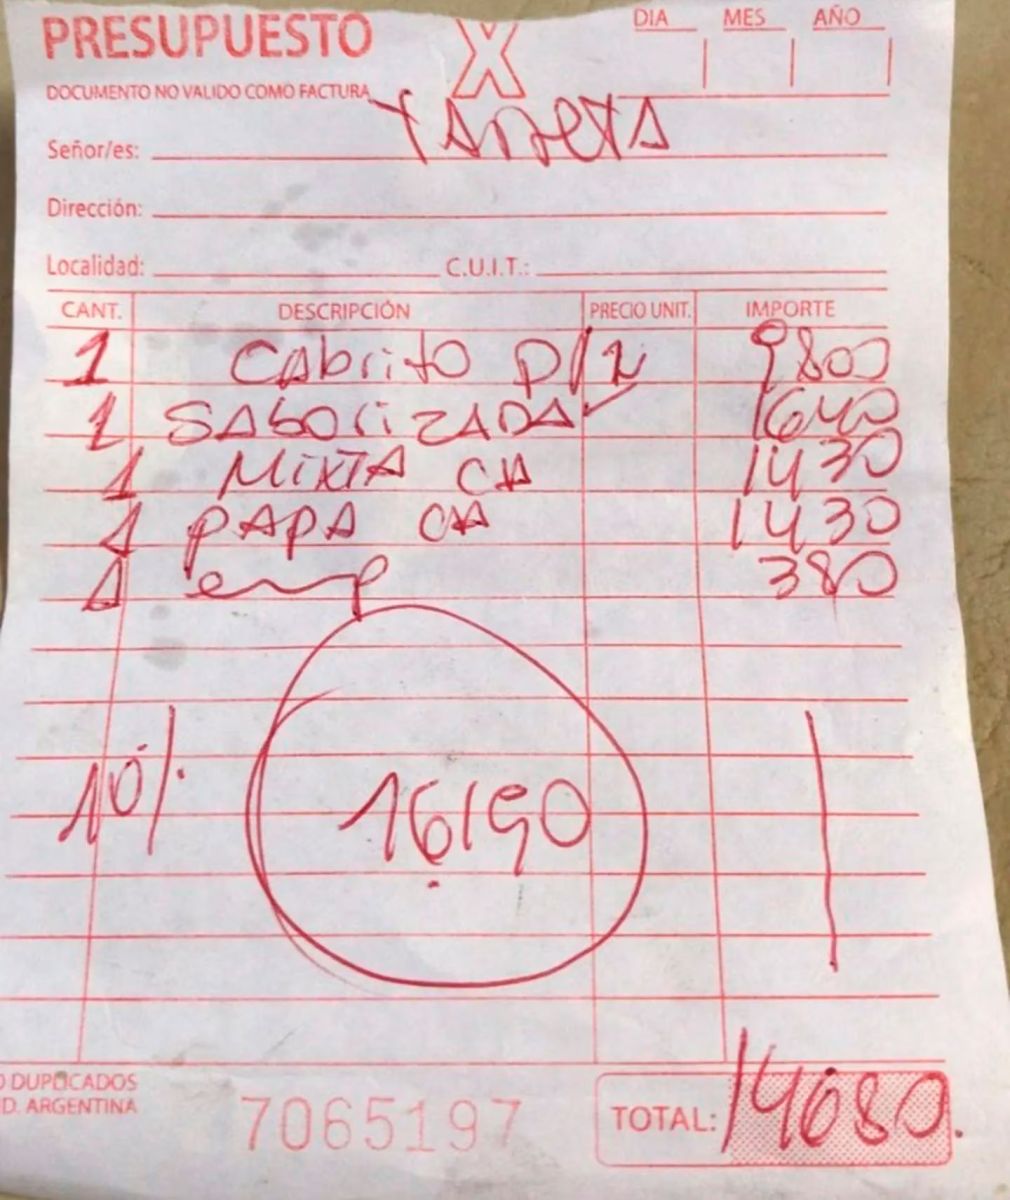 PRESUPUESTO X DIA MES AÑO
DOCUMENTO NO VALIDO COMO FACTURA
Señor/es: TARJETA
Dirección:
Localidad: C.U.I.T.:
CANT. DESCRIPCIÓN PRECIO UNIT. IMPORTE
1 CAbrito p/2 9800
1 SAboriZADA 1640
1 MiXTA CH 1430
1 PAPA CH 1430
1 emp 380
10% 16190
O DUPLICADOS
D. ARGENTINA
7065197 TOTAL: 14680.